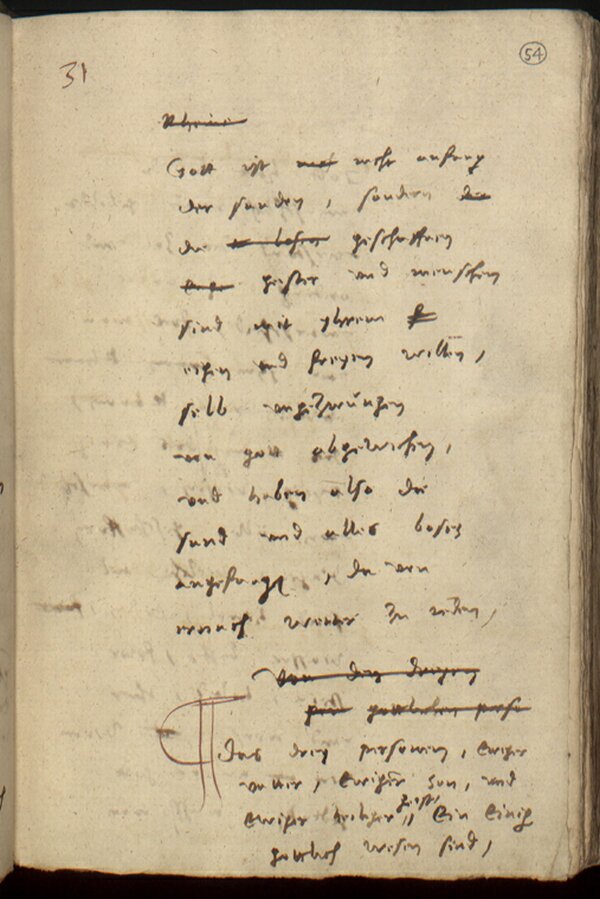 31
54
Gott ist nicht anfang
der sunden, sondern
die geschaffen
geister und menschen
sind mit yhrem
eigen und freyen willen,
selb ungezwungen
von gott abgewichen,
und haben also die
sund und alles boses
angefangen, da von
ernach weiter zu reden,
Von den dreyen
gottlichen perso
Das drey personen, Ewiger
vatter, Ewiger son, und
Ewiger heiliger geist, Ein Einig
gottlich wesen sind,